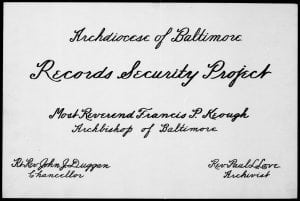 Archdiocese of Baltimore
Records Security Project
Most Reverend Francis P. Keough
Archbishop of Baltimore
Rt. Rev. John J. Duggan
Chancellor
Rev. Paul L. Love
Archivist